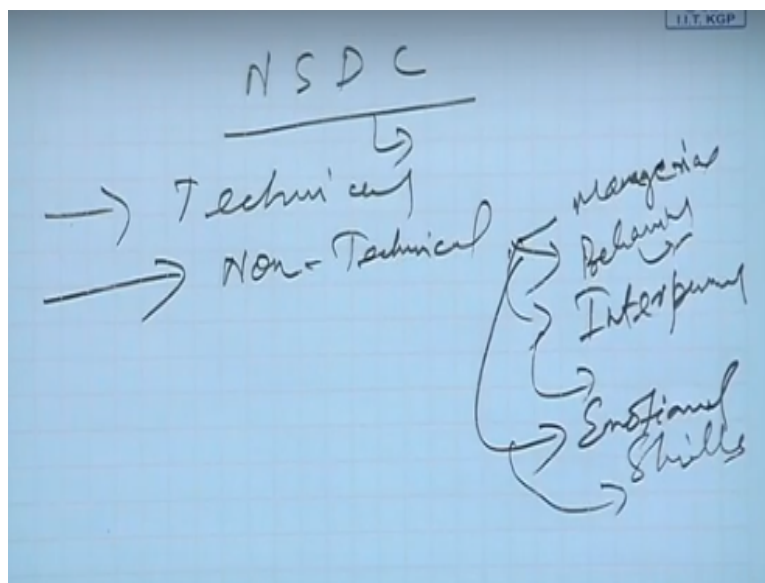 I.I.T. KGP
N S D C
Technical
Non-Technical
Managerial
Behaviour
Interpersonal
Emotional
Skills